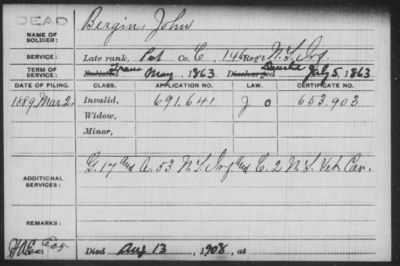 DEAD
NAME OF SOLDIER: Bergin, John
SERVICE: Late rank, Pvt Co. C, 146 Reg't N.Y. Inf.
TERM OF SERVICE: Enlisted Trans May, 1863 Discharged Deserted July 5, 1863
DATE OF FILING. CLASS. APPLICATION NO. LAW. CERTIFICATE NO.
1889 Mar 2, Invalid, 691.641 J O 653.903
Widow,
Minor,
ADDITIONAL SERVICES: G. 17 and A. 53 N.Y. Inf and C. 2 N.Y. Vet Cav.
REMARKS:
Died Aug 13, 1908, at